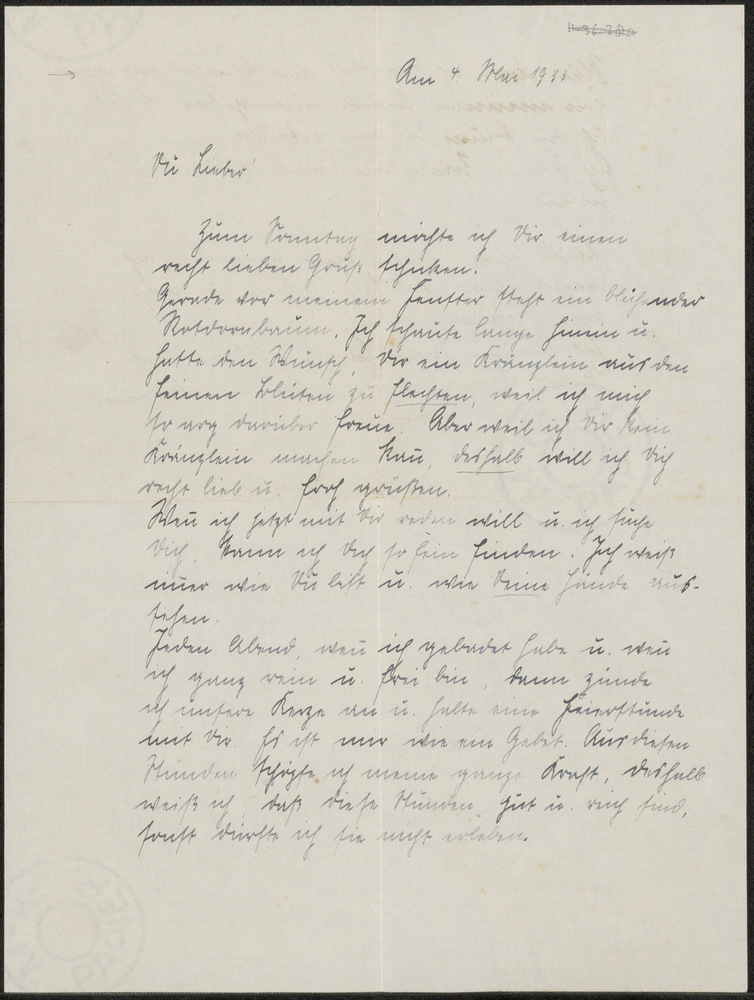 Am 4. Mai 1933
Du Lieber!
Zum Sonntag möchte ich Dir einen
recht lieben Gruß schicken.
Gerade vor meinem Fenster steht ein blühender
Rotdornbaum. Ich schaute lange hinein u.
hatte den Wunsch, Dir ein Kränzlein aus den
feinen Blüten zu flechten, weil ich mich
so arg darüber freue. Aber weil ich Dir kein
Kränzlein machen kañ, deshalb will ich Dich
recht lieb u. froh grüßen.
Weñ ich jetzt mit Dir reden will u. ich suche
Dich, kann ich Dich so fein finden. Ich weiß
wie Du bist u. wie Deine Hände aus-
sehen.
Jeden Abend, weñ ich gebadet habe u. weñ
ich ganz rein u. frei bin, dann zünde
ich unsere Kerze an u. halte eine Feierstunde
mit Dir. Es ist mir wie ein Gebet. Aus diesen
Stunden schöpfe ich meine ganze Kraft, deshalb
weiß ich, daß diese Stunden gut u. rein sind,
sonst dürfte ich sie nicht erleben.